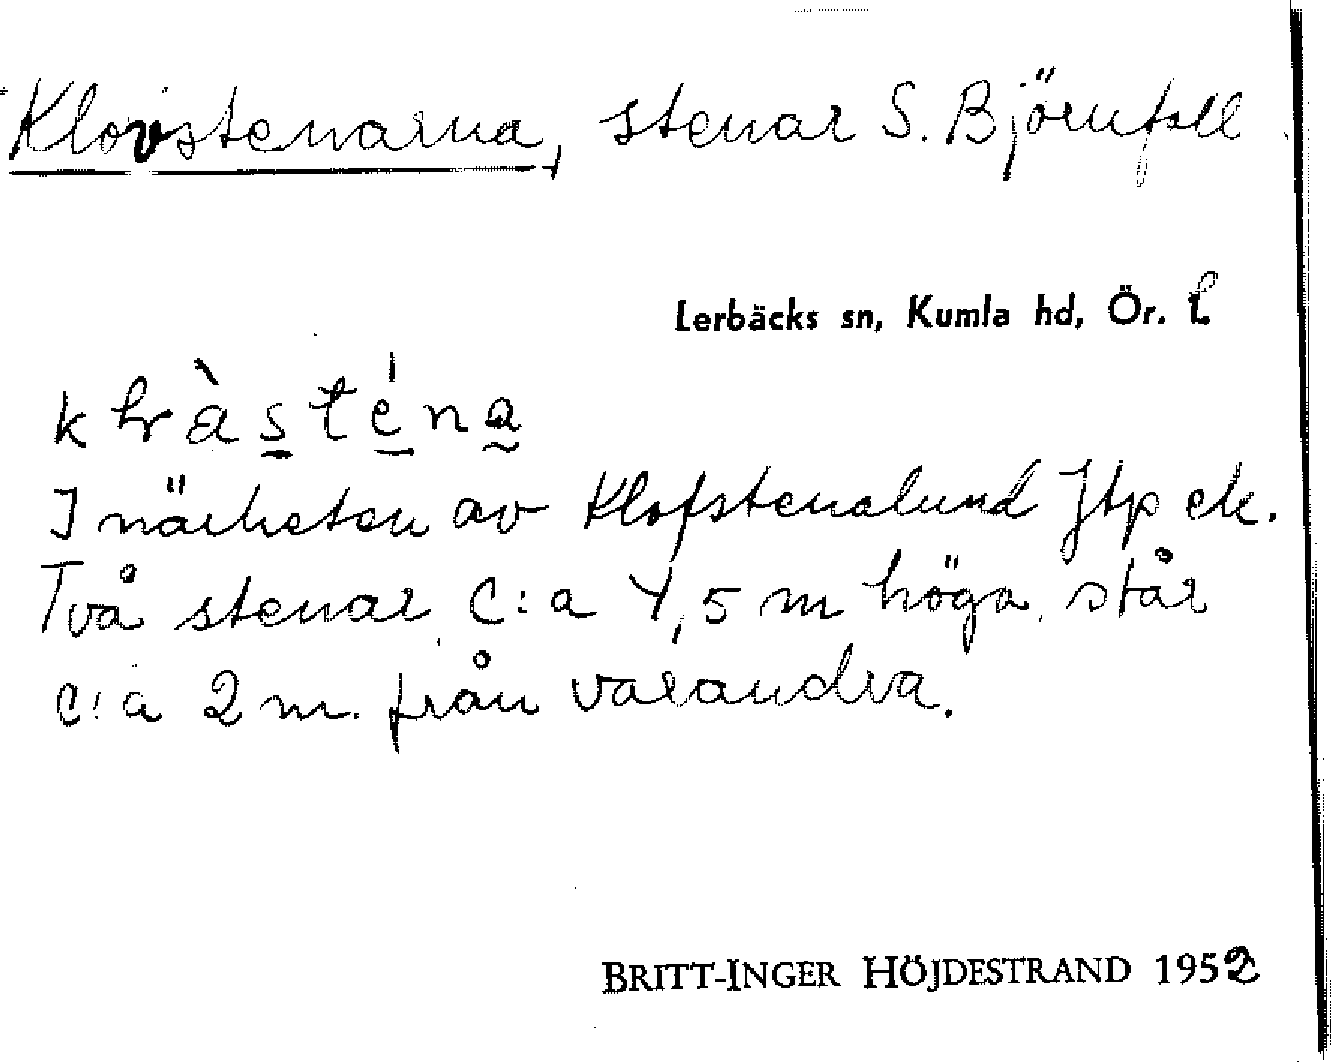 Klovstenarna, stenar S. Björnfall
Lerbäcks sn, Kumla hd, Ör. l
I närheten av Klofstenalund Jtp ek.
Två stenar c:a 1,5 m höga, står
c:a 2 m. från varandra.
BRITT-INGER HÖJDESTRAND 1952